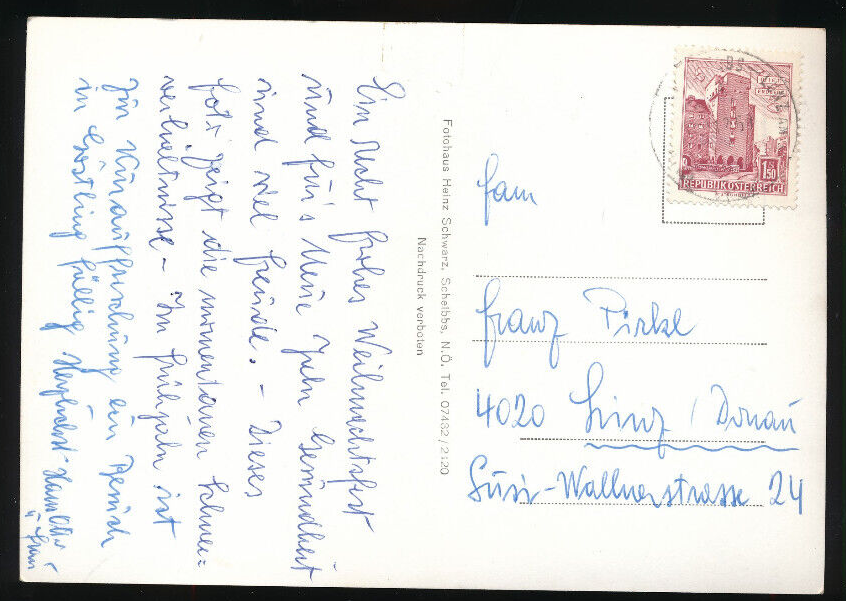 Ein Recht frohes Weihnachtsfest
und für's Neue Jahr Gesundheit
und viel Freude. - Dieses
Foto zeigt die momentanen Schnee=
verhältnisse - Im Frühjahr ist
zur Kurauffrischung ein Besuch
in Göstling fällig Herzlichst
Fotohaus Heinz Schwarz, Scheibbs, N.Ö. Tel. 07432/2120
Nachdruck verboten
1.50
REPUBLIK ÖSTERREICH
Fam
Franz Pirkl
4020 Linz / Donau
Susi-Wallnerstrasse 24